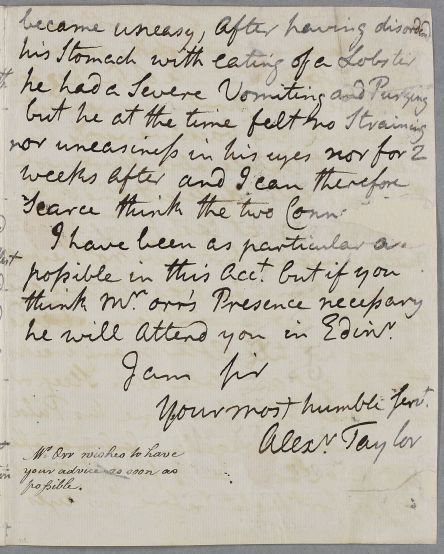 became uneasy, after having disorder
his Stomach with eating of a Lobster
he had a Severe Vomiting and Purging
but he at the time felt no Straining
nor uneasiness in his eyes nor for 2
weeks after and I can therefore
Scarce think the two Conn
I have been as particular as
possible in this Acct. but if you
think Mr. orr's Presence necessary
he will Attend you in Edinr.
I am Sir
Your most humble Servt.
Alexr. Taylor
Mr Orr wishes to have
your advice as soon as
possible.